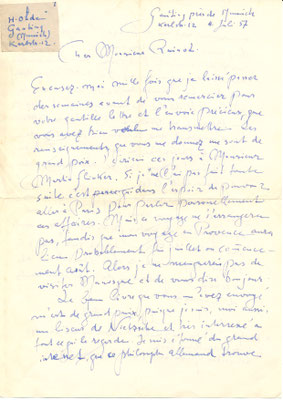 H. Ohde
Gauting
(Munich)
Gauting près de Munich
4 Juli 57
Cher Monsieur
Excusez-moi mille fois que je laisse passer
des semaines avant de vous remercier pour
votre gentille lettre et l'envoi précieux, que
vous avez bien voulu me transmettre. Les
renseignements que vous me donnez me sont de
grand prix. J'écrirai ces jours à Monsieur
Martin Flinker. Si je ne l'ai pas fait toute
suite, c'est parce que j'ai dans l'espoir de pouvoir
aller à Paris pour parler personnellement
ces affaires. Mais ce voyage ne s'arrangera
pas, tandis que mon voyage en Provence aura
lieu probablement fin juillet ou commence-
ment août. Alors je ne manquerais pas de
visiter Manosque et de vous dire bonjour
Le beau livre que vous m'avez envoyé
m'est de grand prix, puisque je suis, moi aussi,
un lecteur de Nietzsche et très intéressé à
tout ce qui le regarde. Je suis étonné du grand
intérêt, que ce philosophe allemand trouve